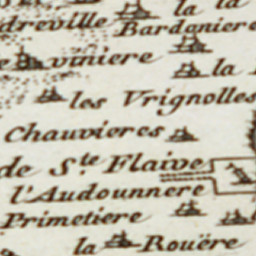 la la
dreville Bardoniere
viniere
la
les Vrignolles
Chauvieres
de S.te Flaive
l'Audounnere
Primetiere
la Rouëre